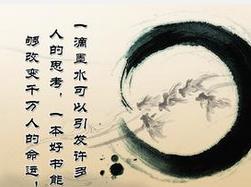 一滴墨水可以引发许多
人的思考，一本好书能
够改变千万人的命运，